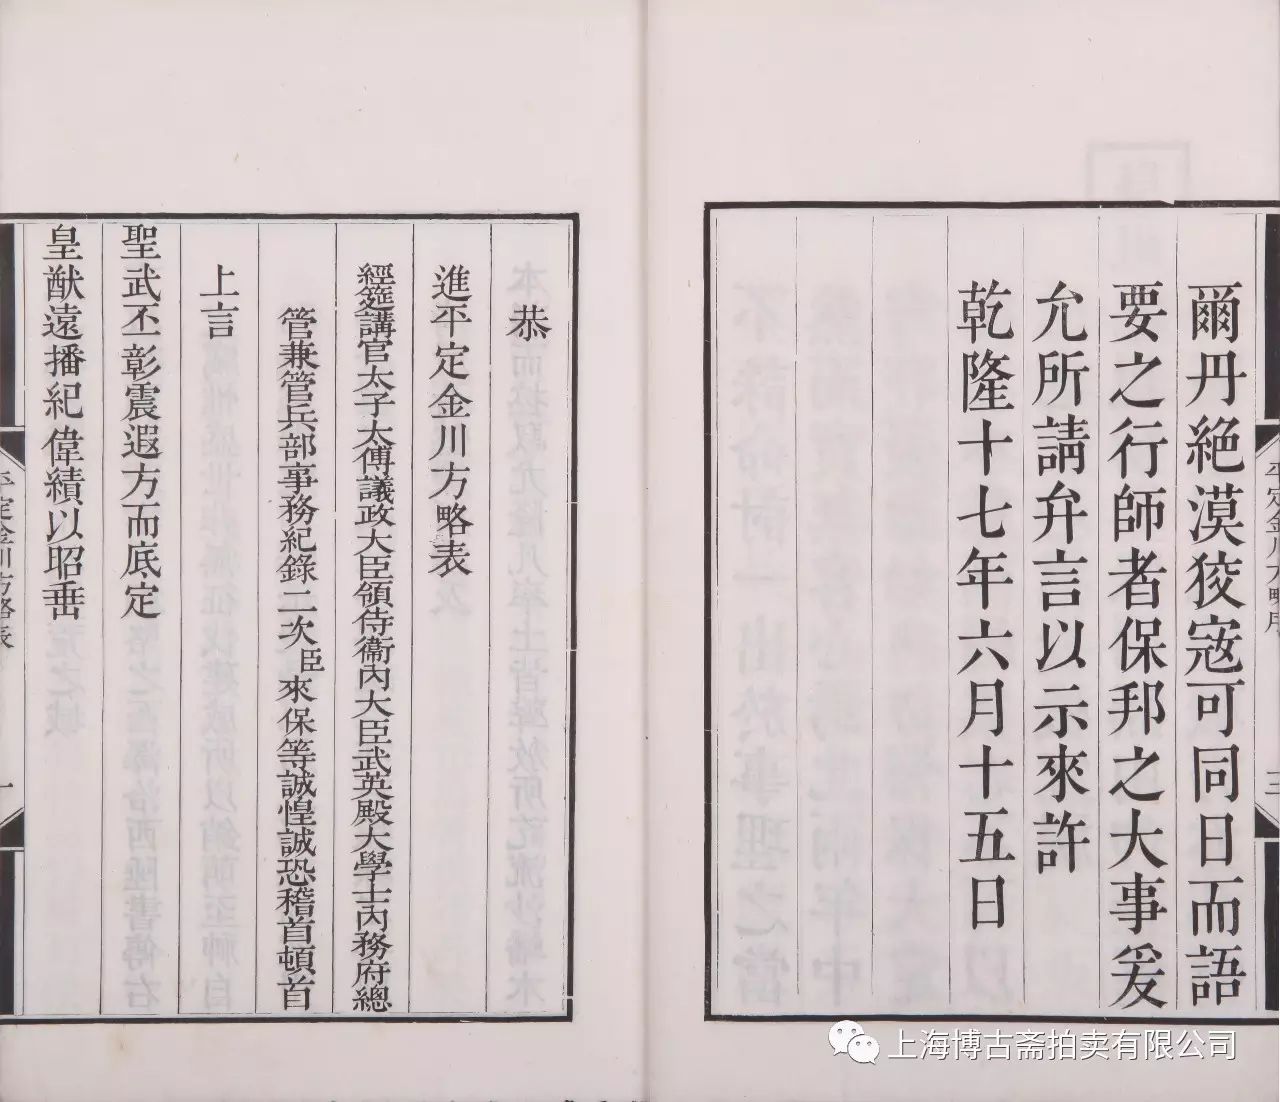 爾丹絶漠狡寇可同日而語
要之行師者保邦之大事爰
允所請弁言以示來許
乾隆十七年六月十五日
恭
進平定金川方略表
經筵講官太子太傅議政大臣領侍衞內大臣武英殿大學士內務府總
管兼管兵部事務紀錄二次臣來保等誠惶誠恐稽首頓首
上言
聖武丕彰震遐方而底定
皇猷遠播紀偉績以昭垂
平定金川方略表
一
平定金川方略序
三
上海博古斋拍卖有限公司